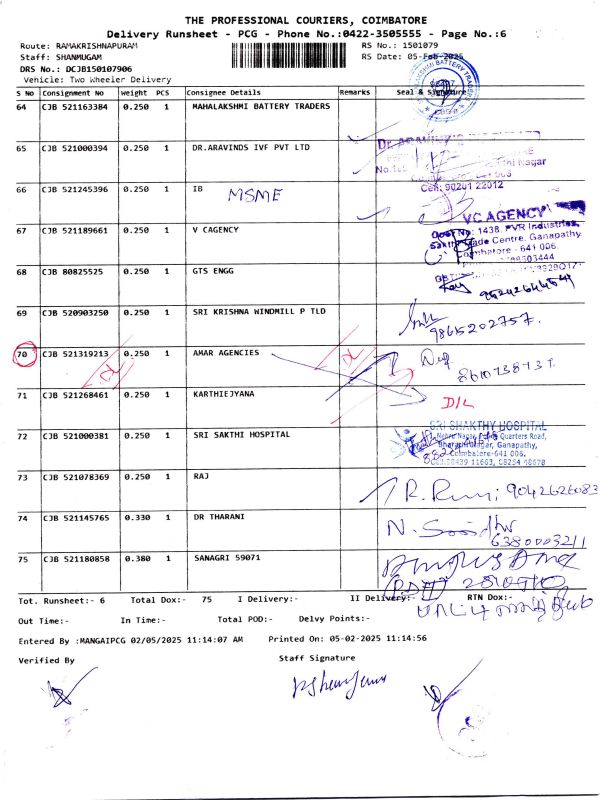 THE PROFESSIONAL COURIERS, COIMBATORE
Delivery Runsheet - PCG - Phone No.:0422-3505555 - Page No.:6
Route: RAMAKRISHNAPURAM RS No.: 1501079
Staff: SHANMUGAM RS Date: 05-Feb-2025
DRS No.: DCJB150107906
Vehicle: Two Wheeler Delivery
S No Consignment No Weight PCS Consignee Details Remarks Seal & Signature
64 CJB 521163384 0.250 1 MAHALAKSHMI BATTERY TRADERS
65 CJB 521000394 0.250 1 DR.ARAVINDS IVF PVT LTD
Cell: 90201 22012
66 CJB 521245396 0.250 1 IB MSME
VC AGENCY
67 CJB 521189661 0.250 1 V CAGENCY
Door No: 1438, PVR Industries,
Sakthi Trade Centre, Ganapathy,
Coimbatore - 641 006.
68 CJB 80825525 0.250 1 GTS ENGG
69 CJB 520903250 0.250 1 SRI KRISHNA WINDMILL P TLD
9865202757.
70 CJB 521319213 0.250 1 AMAR AGENCIES
71 CJB 521268461 0.250 1 KARTHIEJYANA D/L
72 CJB 521000381 0.250 1 SRI SAKTHI HOSPITAL
SRI SHAKTHY HOSPITAL
Nehru Nagar, Quarters Road,
Bharathi Nagar, Ganapathy,
Coimbatore-641 006.
73 CJB 521078369 0.250 1 RAJ
9042626083
74 CJB 521145765 0.330 1 DR THARANI
6380003211
75 CJB 521180858 0.380 1 SANAGRI 59071
Tot. Runsheet:- 6 Total Dox:- 75 I Delivery:- II Delivery:- RTN Dox:-
Out Time:- In Time:- Total POD:- Delvy Points:-
Entered By :MANGAIPCG 02/05/2025 11:14:07 AM Printed On: 05-02-2025 11:14:56
Verified By Staff Signature